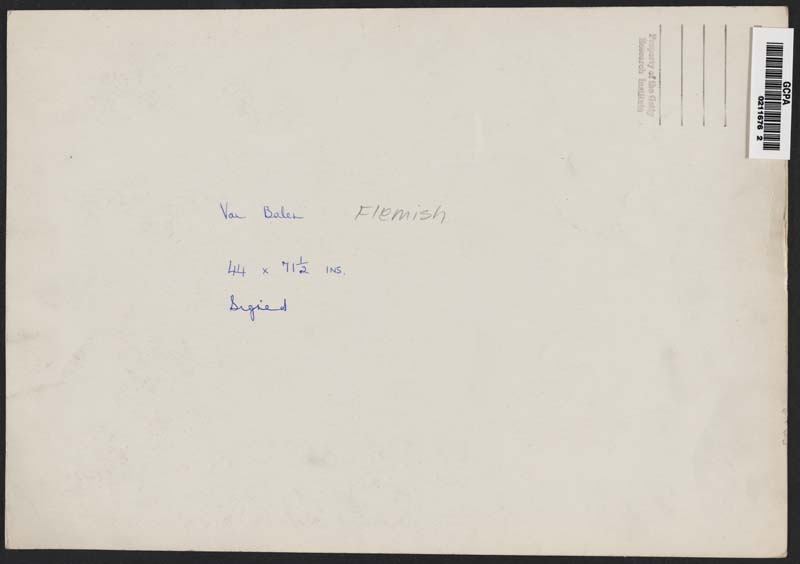 Property of the Getty
Research Institute
GCPA
0211676 2
Van Balen Flemish
44 x 71 1/2 INS.
Signed